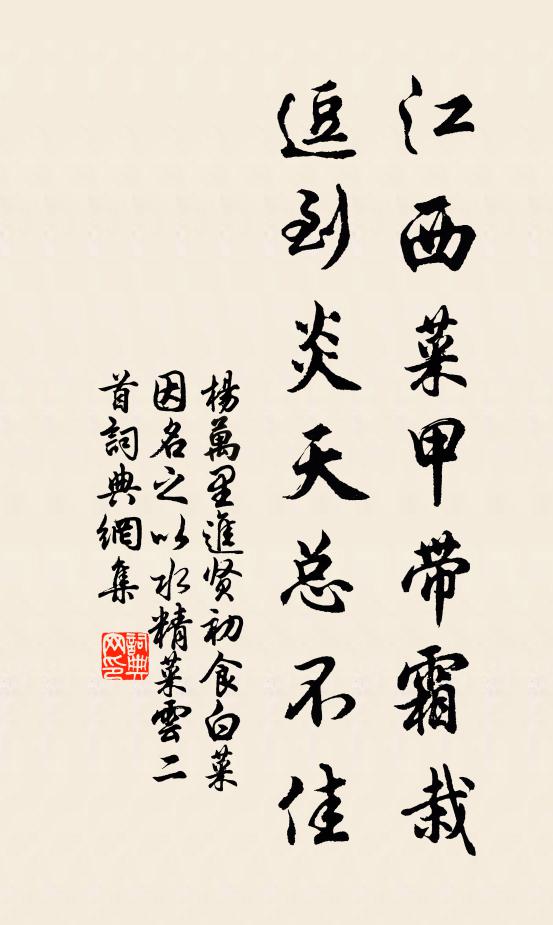 江西菜甲带霜栽
逗到炎天总不佳
楊萬里進贤初食白菜
因名之以水精菜雲二
首詞典網集
詞典网印